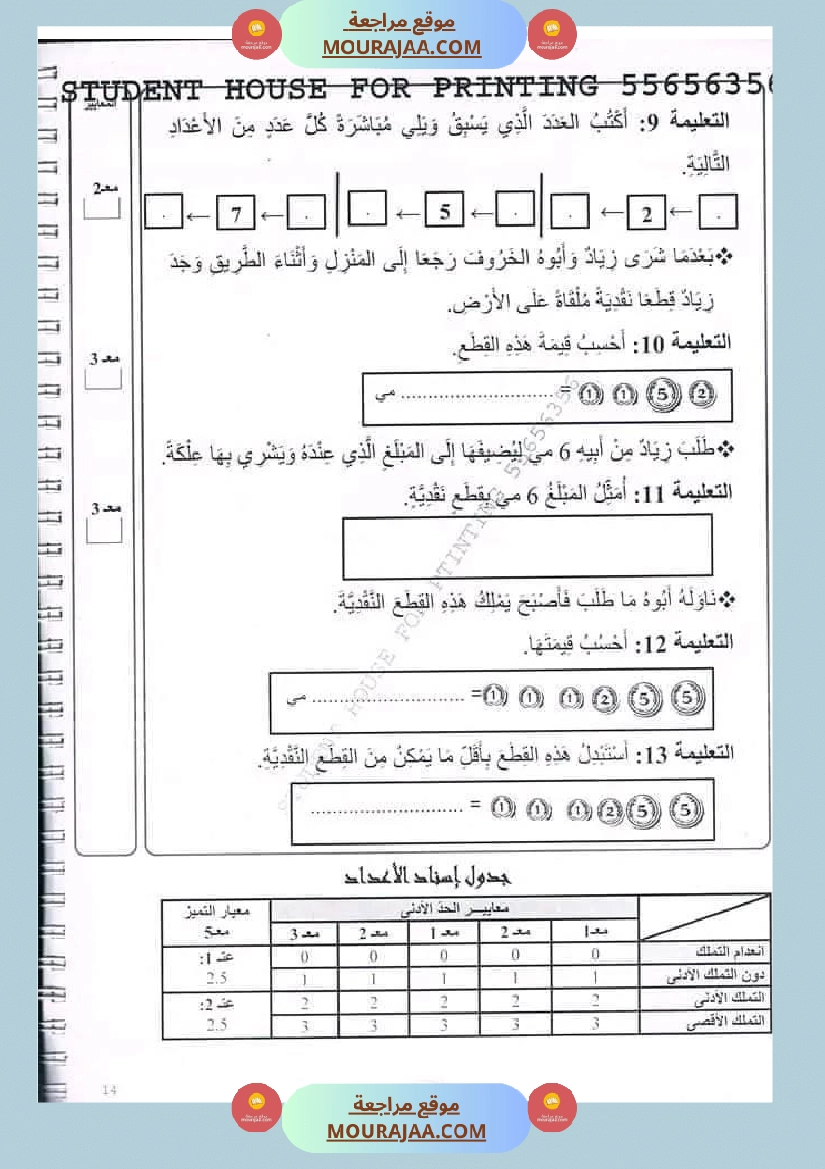 موقع مراجعة
MOURAJAA.COM
STUDENT HOUSE FOR PRINTING 55656356
المعايير
التعليمة 9: أَكْتُبُ العَدَدَ الَّذِي يَسْبِقُ وَيَلِي مُبَاشَرَةً كُلَّ عَدَدٍ مِنَ الأَعْدَادِ
التَّالِيَةِ.
مع2
. ← 2 ← . | . ← 5 ← . | . ← 7 ← .
❖بَعْدَمَا شَرَى زِيَادٌ وَأَبُوهُ الخَرُوفَ رَجَعَا إِلَى المَنْزِلِ وَأَثْنَاءَ الطَّرِيقِ وَجَدَ
زِيَادٌ قِطَعًا نَقْدِيَةً مُلْقَاةً عَلَى الأَرْضِ.
التعليمة 10: أَحْسِبُ قِيمَةَ هَذِهِ القِطَعِ.
مع 3
2 5 1 1 = .............................. مي
❖طَلَبَ زِيَادٌ مِنْ أَبِيهِ 6 مي لِيُضِيفَهَا إِلَى المَبْلَغِ الَّذِي عِنْدَهُ وَيَشْرِي بِهَا عِلْكَةً.
التعليمة 11: أُمَثِّلُ المَبْلَغُ 6 مي بِقِطَعٍ نَقْدِيَّةٍ.
مع 3
❖نَاوَلَهُ أَبُوهُ مَا طَلَبَ فَأَصْبَحَ يَمْلِكُ هَذِهِ القِطَعَ النَّقْدِيَّةَ.
التعليمة 12: أَحْسُبُ قِيمَتَهَا.
5 5 2 1 1 1 = .............................. مي
التعليمة 13: أَسْتَبْدِلُ هَذِهِ القِطَعَ بِأَقَلِّ مَا يَمْكِنُ مِنَ القِطَعِ النَّقْدِيَّةِ.
5 5 2 1 1 1 = ..............................
STUDENT HOUSE FOR PTINTING 55656356
جدول إسناد الأعداد
معايير الحد الأدنى معيار التميز
مع1 مع 2 مع 1 مع 2 مع 3 مع5
انعدام التملك 0 0 0 0 0 عند 1:
دون التملك الأدنى 1 1 1 1 1 2.5
التملك الأدنى 2 2 2 2 2 عند 2:
التملك الأقصى 3 3 3 3 3 2.5
14
موقع مراجعة
MOURAJAA.COM